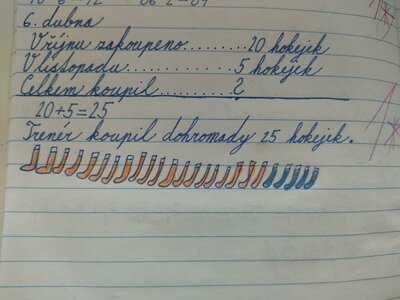 6. dubna
V říjnu zakoupeno........20 hokejek
V listopadu............5 hokejek
Celkem koupil.........?
20+5=25
Trenér koupil dohromady 25 hokejek.